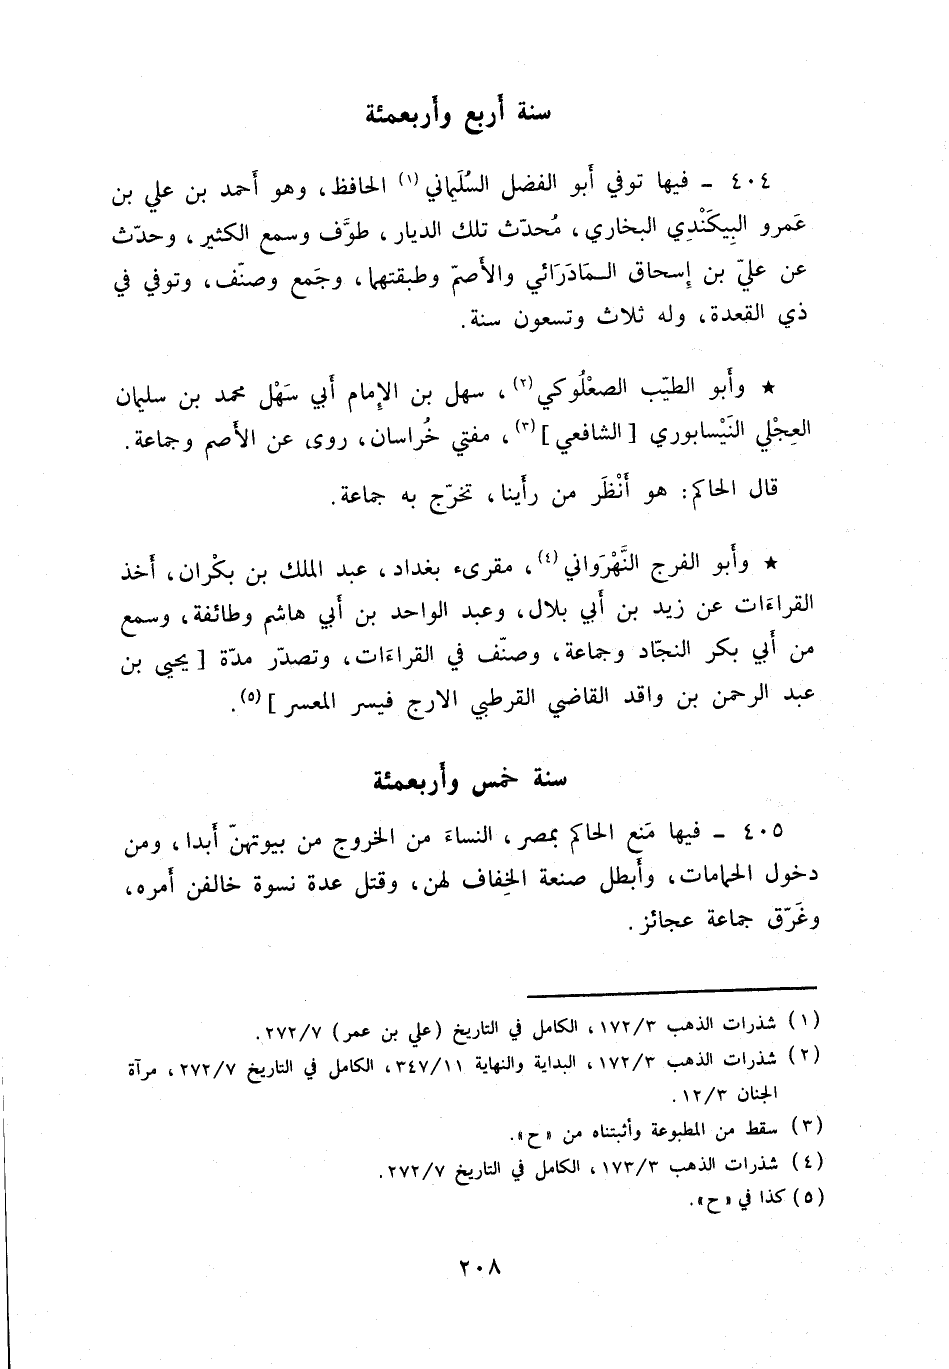 سنة أربع وأربعمئة
٤٠٤ - فيها توفي أبو الفضل السُلَيماني(١) الحافظ، وهو أحمد بن علي بن
عَمرو البِيكَنْدِي البخاري، مُحدّث تلك الديار، طوَّف وسمع الكثير، وحدّث
عن عليّ بن إسحاق المَادَرَائي والأصمّ وطبقتهما، وجَمع وصنّف، وتوفي في
ذي القعدة، وله ثلاث وتسعون سنة.
★ وأبو الطيّب الصعْلُوكي(٢)، سهل بن الإمام أبي سَهْل محمد بن سليمان
العِجْلي النَيْسابوري [ الشافعي ](٣)، مفتي خُراسان، روى عن الأصم وجماعة.
قال الحاكم: هو أنْظَر من رأينا، تخرّج به جماعة.
★ وأبو الفرج النَّهْرَواني(٤)، مقرىء بغداد، عبد الملك بن بكْران، أخذ
القراءَات عن زيد بن أبي بلال، وعبد الواحد بن أبي هاشم وطائفة، وسمع
من أبي بكر النجّاد وجماعة، وصنّف في القراءَات، وتصدّر مدّة [ يحيى بن
عبد الرحمن بن واقد القاضي القرطبي الارج فيسر المعسر ](٥).
سنة خمس وأربعمئة
٤٠٥ - فيها مَنع الحاكم بمصر، النساءَ من الخروج من بيوتهنّ أبدا، ومن
دخول الحمامات، وأبطل صنعة الخِفاف لهن، وقتل عدة نسوة خالفن أمره،
وغَرّق جماعة عجائز.
(١) شذرات الذهب ١٧٢/٣، الكامل في التاريخ (علي بن عمر) ٢٧٢/٧.
(٢) شذرات الذهب ١٧٢/٣، البداية والنهاية ٣٤٧/١١، الكامل في التاريخ ٢٧٢/٧، مرآة
الجنان ١٢/٣.
(٣) سقط من المطبوعة وأثبتناه من «ح».
(٤) شذرات الذهب ١٧٣/٣، الكامل في التاريخ ٢٧٢/٧.
(٥) كذا في «ح».
٢٠٨